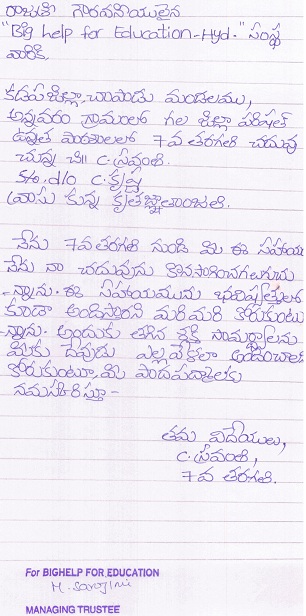 రాజశ్రీ గౌరవనీయులైన
"Big help for Education-Hyd." సంస్థ
వారికి,
కడపజిల్లా, చాపాడు మండలము,
అన్నవరం గ్రామంలో గల జిల్లా పరిషత్
ఉన్నత పాఠశాలలో 7వ తరగతి చదువు
చున్న చి॥ C. స్రవంతి.
S/o. d/o C. కృష్ణ
వ్రాసు కున్న కృతజ్ఞతాంజలి.
నేను 7వ తరగతి నుండి మీ ఈ సహాయ
నేను నా చదువును కొనసాగించగలుగుచు
-న్నాను. ఈ సహాయమును భవిష్యత్తులో
కూడా అందిస్తారని మరిమరి కోరుకుంటు
-న్నాను. అందుకు తగిన శక్తి సామర్థ్యాలను
మీకు దేవుడు ఎల్లవేళలా అందించాలని
కోరుకుంటూ, మీ పాదపద్మాలకు
నమస్కరిస్తూ -
తమ విధేయులు,
C. స్రవంతి,
7వ తరగతి.
For BIGHELP FOR EDUCATION
M. Sarojini
MANAGING TRUSTEE